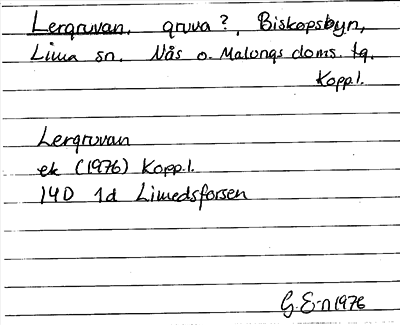 Lergruvan. gruva?, Biskopsbyn,
Lima sn. Nås o. Malungs doms. tg.
Koppl.
Lergruvan
ek (1976) Koppl.
14D 1d Limedsforsen
G.E-n 1976